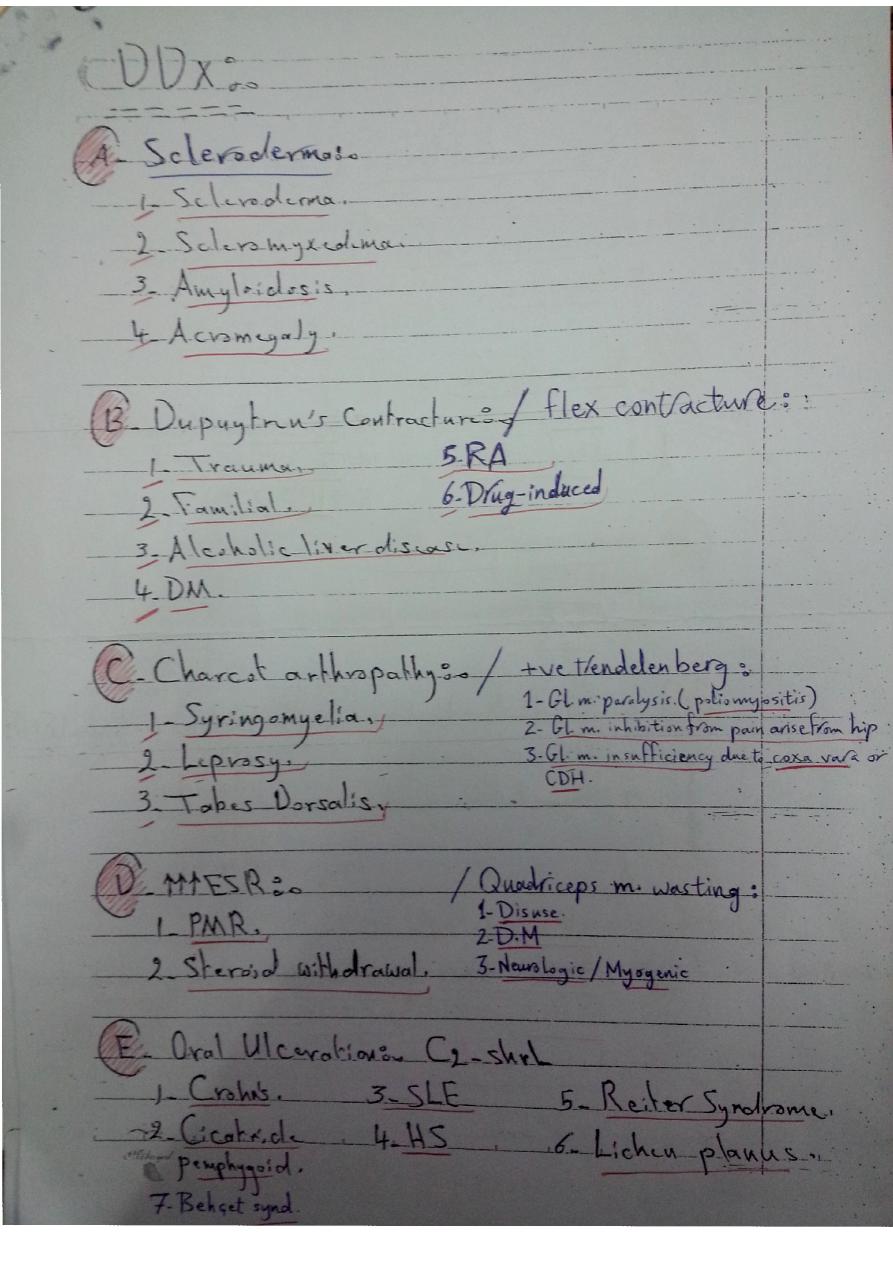 DDx:
A- Scleroderma:
1- Scleroderma.
2- Scleromyxedema.
3- Amyloidosis.
4- Acromegaly.
B- Dupuytren's Contracture: / flex contracture:
1- Trauma. 5-RA
2- Familial. 6-Drug-induced
3- Alcoholic liver disease.
4- DM.
C- Charcot arthropathy: / +ve trendelenberg:
1- Syringomyelia. 1- Gl m. paralysis. (poliomyositis)
2- Gl. m. inhibition from pain arise from hip
2- Leprosy. 3- Gl. m. insufficiency due to coxa vara or
CDH.
3- Tabes Dorsalis.
D- ↑↑↑ESR: / Quadriceps m. wasting:
1- PMR. 1- Disuse.
2- D.M
2- Steroid withdrawal. 3- Neurologic / Myogenic
E- Oral Ulceration:
1- Crohn's. 3- SLE 5- Reiter Syndrome.
2- Cicatricle 4- HS 6- Lichen planus.
pemphygoid.
7- Behçet synd.